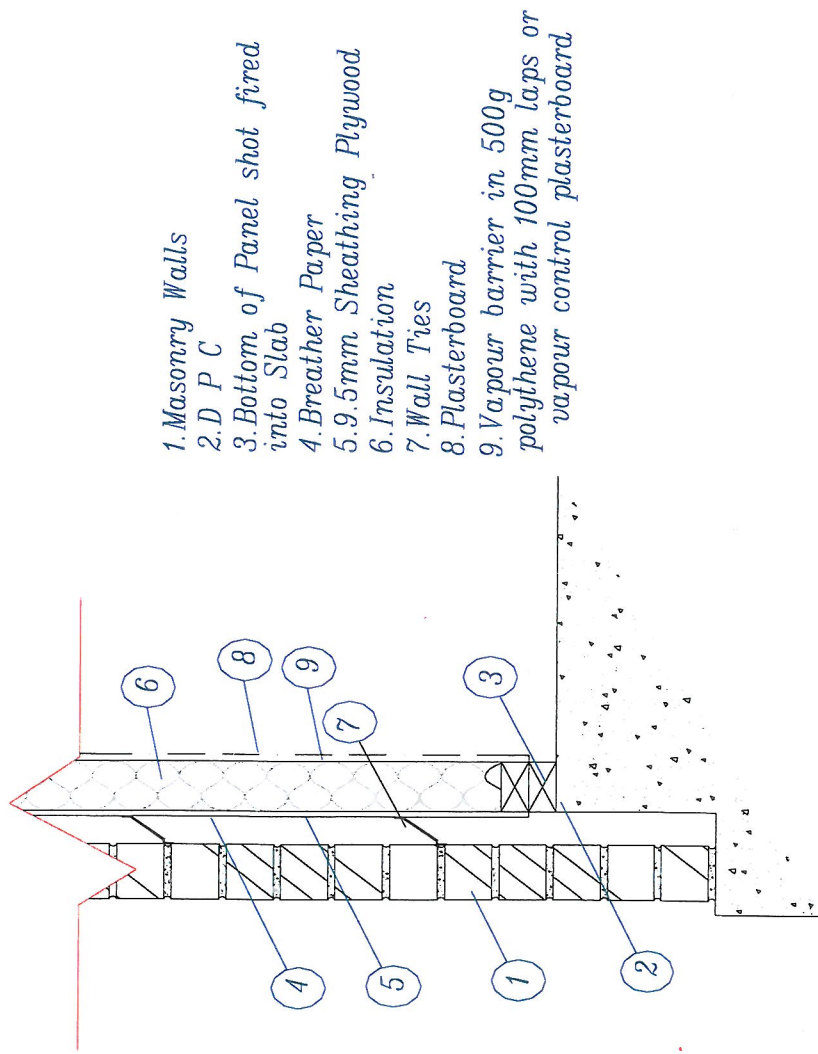 1.Masonry Walls
2.D P C
3.Bottom of Panel shot fired
into Slab
4.Breather Paper
5.9.5mm Sheathing Plywood
6.Insulation
7.Wall Ties
8.Plasterboard
9.Vapour barrier in 500g
polythene with 100mm laps or
vapour control plasterboard
6
8
9
7
3
4
5
1
2